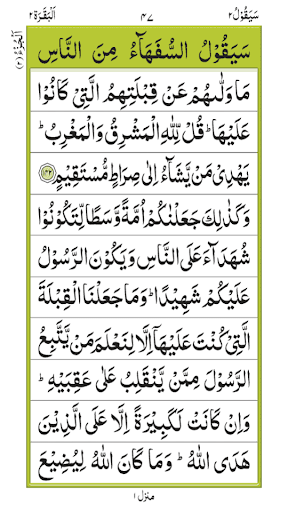 سَيَقُوْلُ ٢ ٤٧ اَلْبَقَرَة ٢
اَلْجُزْءُ (٢)
سَيَقُوْلُ السُّفَهَآءُ مِنَ النَّاسِ
مَا وَلّٰىهُمْ عَنْ قِبْلَتِهِمُ الَّتِيْ كَانُوْا
عَلَيْهَا ؕ قُلْ لِّلّٰهِ الْمَشْرِقُ وَالْمَغْرِبُ ؕ
يَهْدِيْ مَنْ يَّشَآءُ اِلٰى صِرَاطٍ مُّسْتَقِيْمٍ ﴿۱۴۲﴾
وَكَذٰلِكَ جَعَلْنٰكُمْ اُمَّةً وَّسَطًا لِّتَكُوْنُوْا
شُهَدَآءَ عَلَى النَّاسِ وَيَكُوْنَ الرَّسُوْلُ
عَلَيْكُمْ شَهِيْدًا ؕ وَمَا جَعَلْنَا الْقِبْلَةَ
الَّتِيْ كُنْتَ عَلَيْهَاۤ اِلَّا لِنَعْلَمَ مَنْ يَّتَّبِعُ
الرَّسُوْلَ مِمَّنْ يَّنْقَلِبُ عَلٰى عَقِبَيْهِ ؕ
وَاِنْ كَانَتْ لَكَبِيْرَةً اِلَّا عَلَى الَّذِيْنَ
هَدَى اللّٰهُ ؕ وَمَا كَانَ اللّٰهُ لِيُضِيْعَ
منزل ١